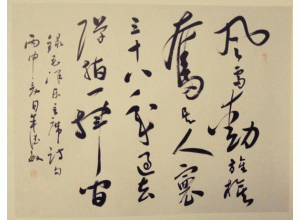 风雷動旌旗
奮是人寰
三十八年過去
彈指一揮間
録毛泽东主席詩句
丙申